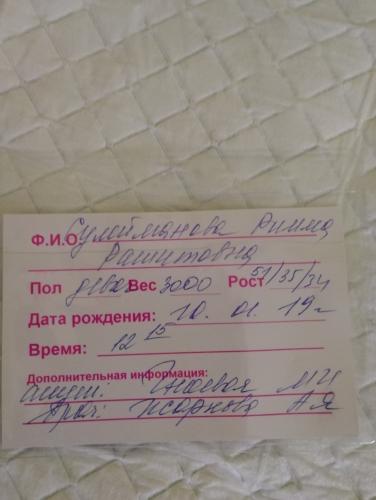 Ф.И.О. Сулейманова Римма
Рашитовна
Пол девоч Вес 3000 Рост 51/35/34
Дата рождения: 10. 01. 19г
Время: 12 15
Дополнительная информация:
акуш:
Врач: А Я